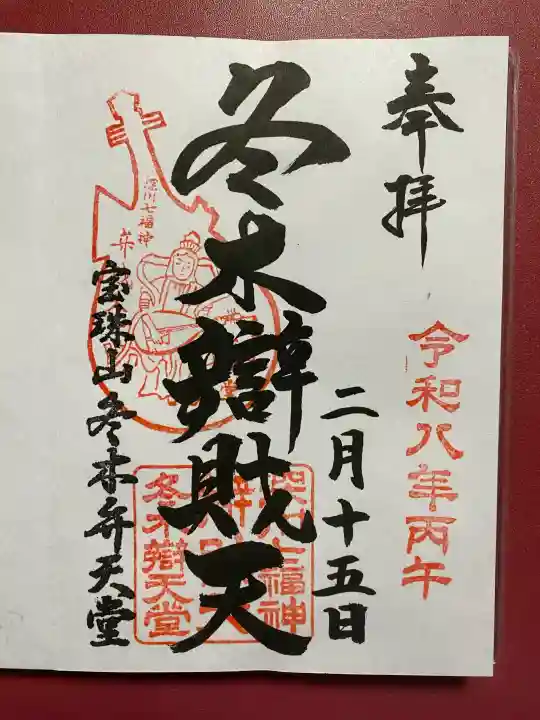 奉拝
令和八年丙午
二月十五日
冬木辯財天
深川七福神
宝珠山冬木弁天堂
七福神
冬木辯天堂